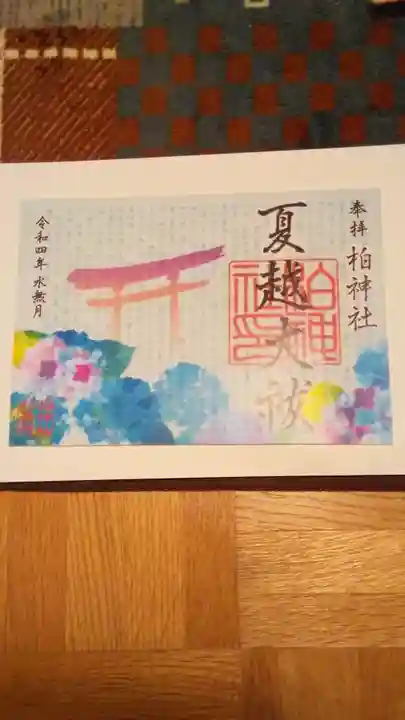 奉拝 柏神社
夏越大祓
柏神社印
令和四年 水無月